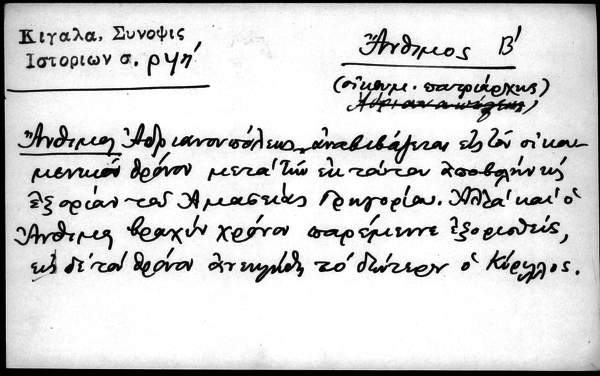 Κιγαλα, Συνοψις
Ιστοριων σ. ρμή
Ἄνθιμος Β΄
(οἰκουμ. πατριάρχης)
Ἄνθιμος Ἀδριανουπόλεως, ἀναβιβάζεται εἰς τὸν οἰκου
μενικὸν θρόνον μετὰ τὴν ἐκ τούτου ἀποβολὴν εἰς
ἐξορίαν τοῦ Ἀμασείας Γρηγορίου. Ἀλλὰ καὶ ὁ
Ἄνθιμος βραχὺν χρόνον παρέμεινε ἐξορισθείς,
εἰς δὲ τὸν θρόνον ἀνεκλήθη τὸ δεύτερον ὁ Κύριλλος.